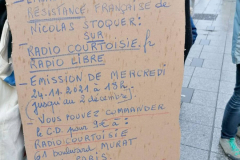 RÉSISTANCE FRANÇAISE de
NICOLAS STOQUER:
SUR
RADIO COURTOISIE.fr
RADIO LIBRE
- EMISSION DE MERCREDI
24.11.2021 à 19h.
(jusqu'au 2 décembre).
(VOUS POUVEZ COMMANDER
le CD. pour 9€ à:
RADIO COURTOISIE
61 boulevard MURAT
PARIS